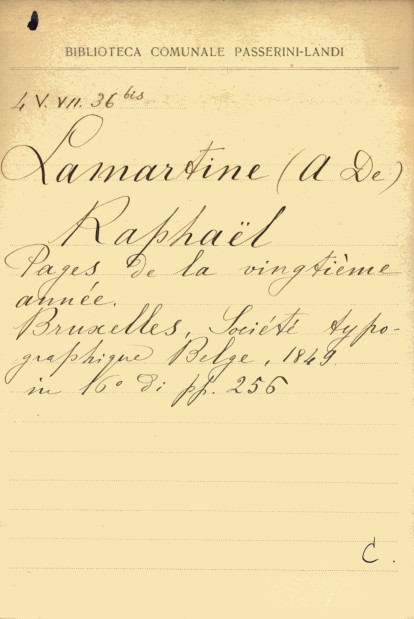 BIBLIOTECA COMUNALE PASSERINI-LANDI
4 V. VII. 36 bis
Lamartine (A De)
Raphaël
Pages de la vingtième
année.
Bruxelles, Société typo-
graphique Belge, 1849
in 16° di pp. 256
C.